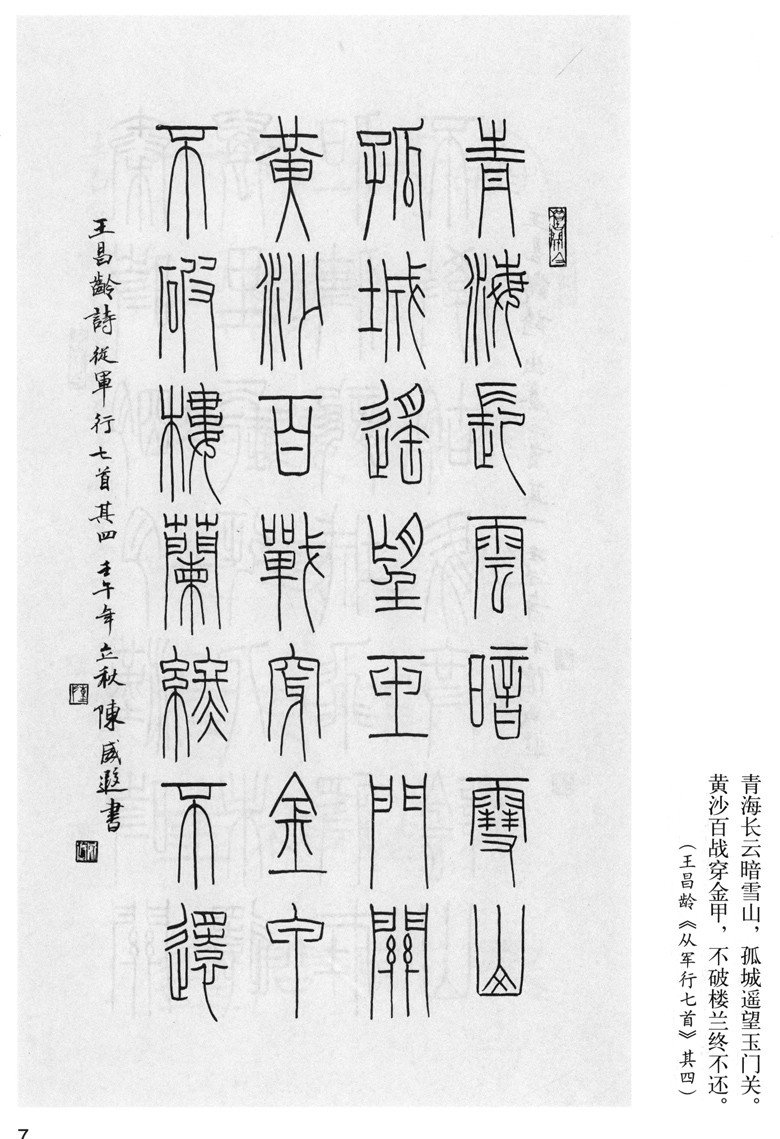 青海長雲暗雪山
孤城遙望玉門關
黃沙百戰穿金甲
不破樓蘭終不還
王昌齡詩從軍行七首其四 壬午年立秋 陳威遐書
青海长云暗雪山，孤城遥望玉门关。
黄沙百战穿金甲，不破楼兰终不还。
（王昌龄《从军行七首》其四）
7